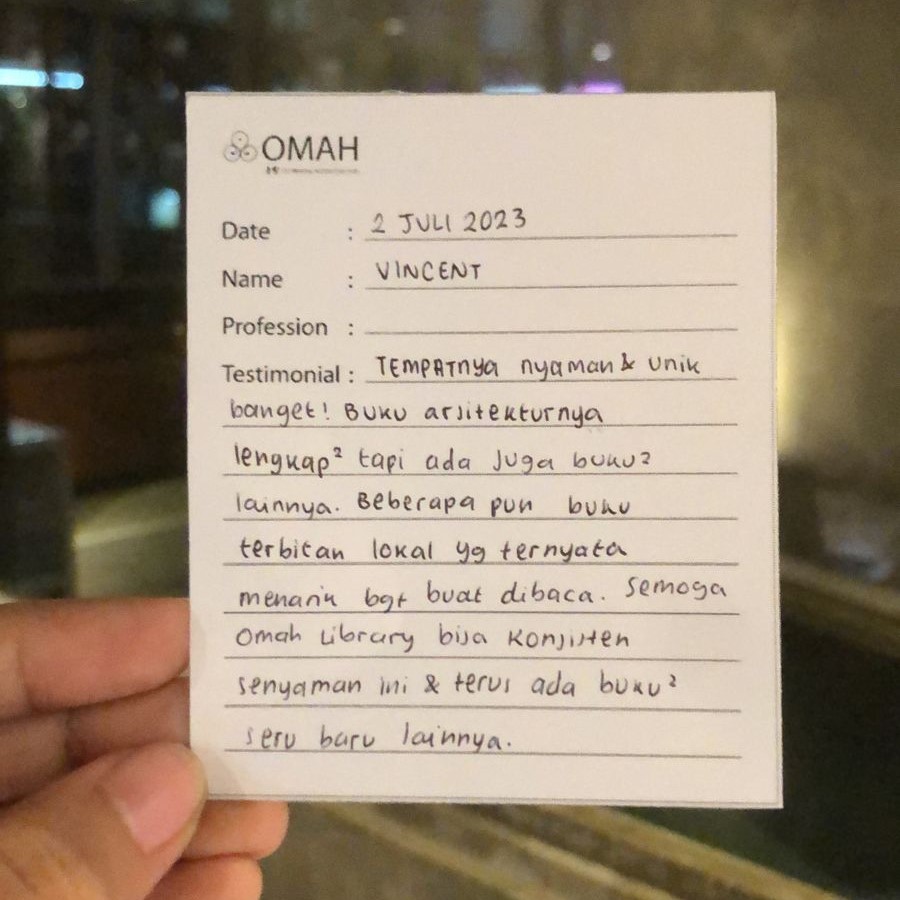 OMAH
Date : 2 JULI 2023
Name : VINCENT
Profession :
Testimonial : TEMPATnya nyaman & unik
banget! Buku arsitekturnya
lengkap² tapi ada juga buku²
lainnya. Beberapa pun buku
terbitan lokal yg ternyata
menarik bgt buat dibaca. Semoga
Omah Library bisa Konsisten
senyaman ini & terus ada buku²
seru baru lainnya.